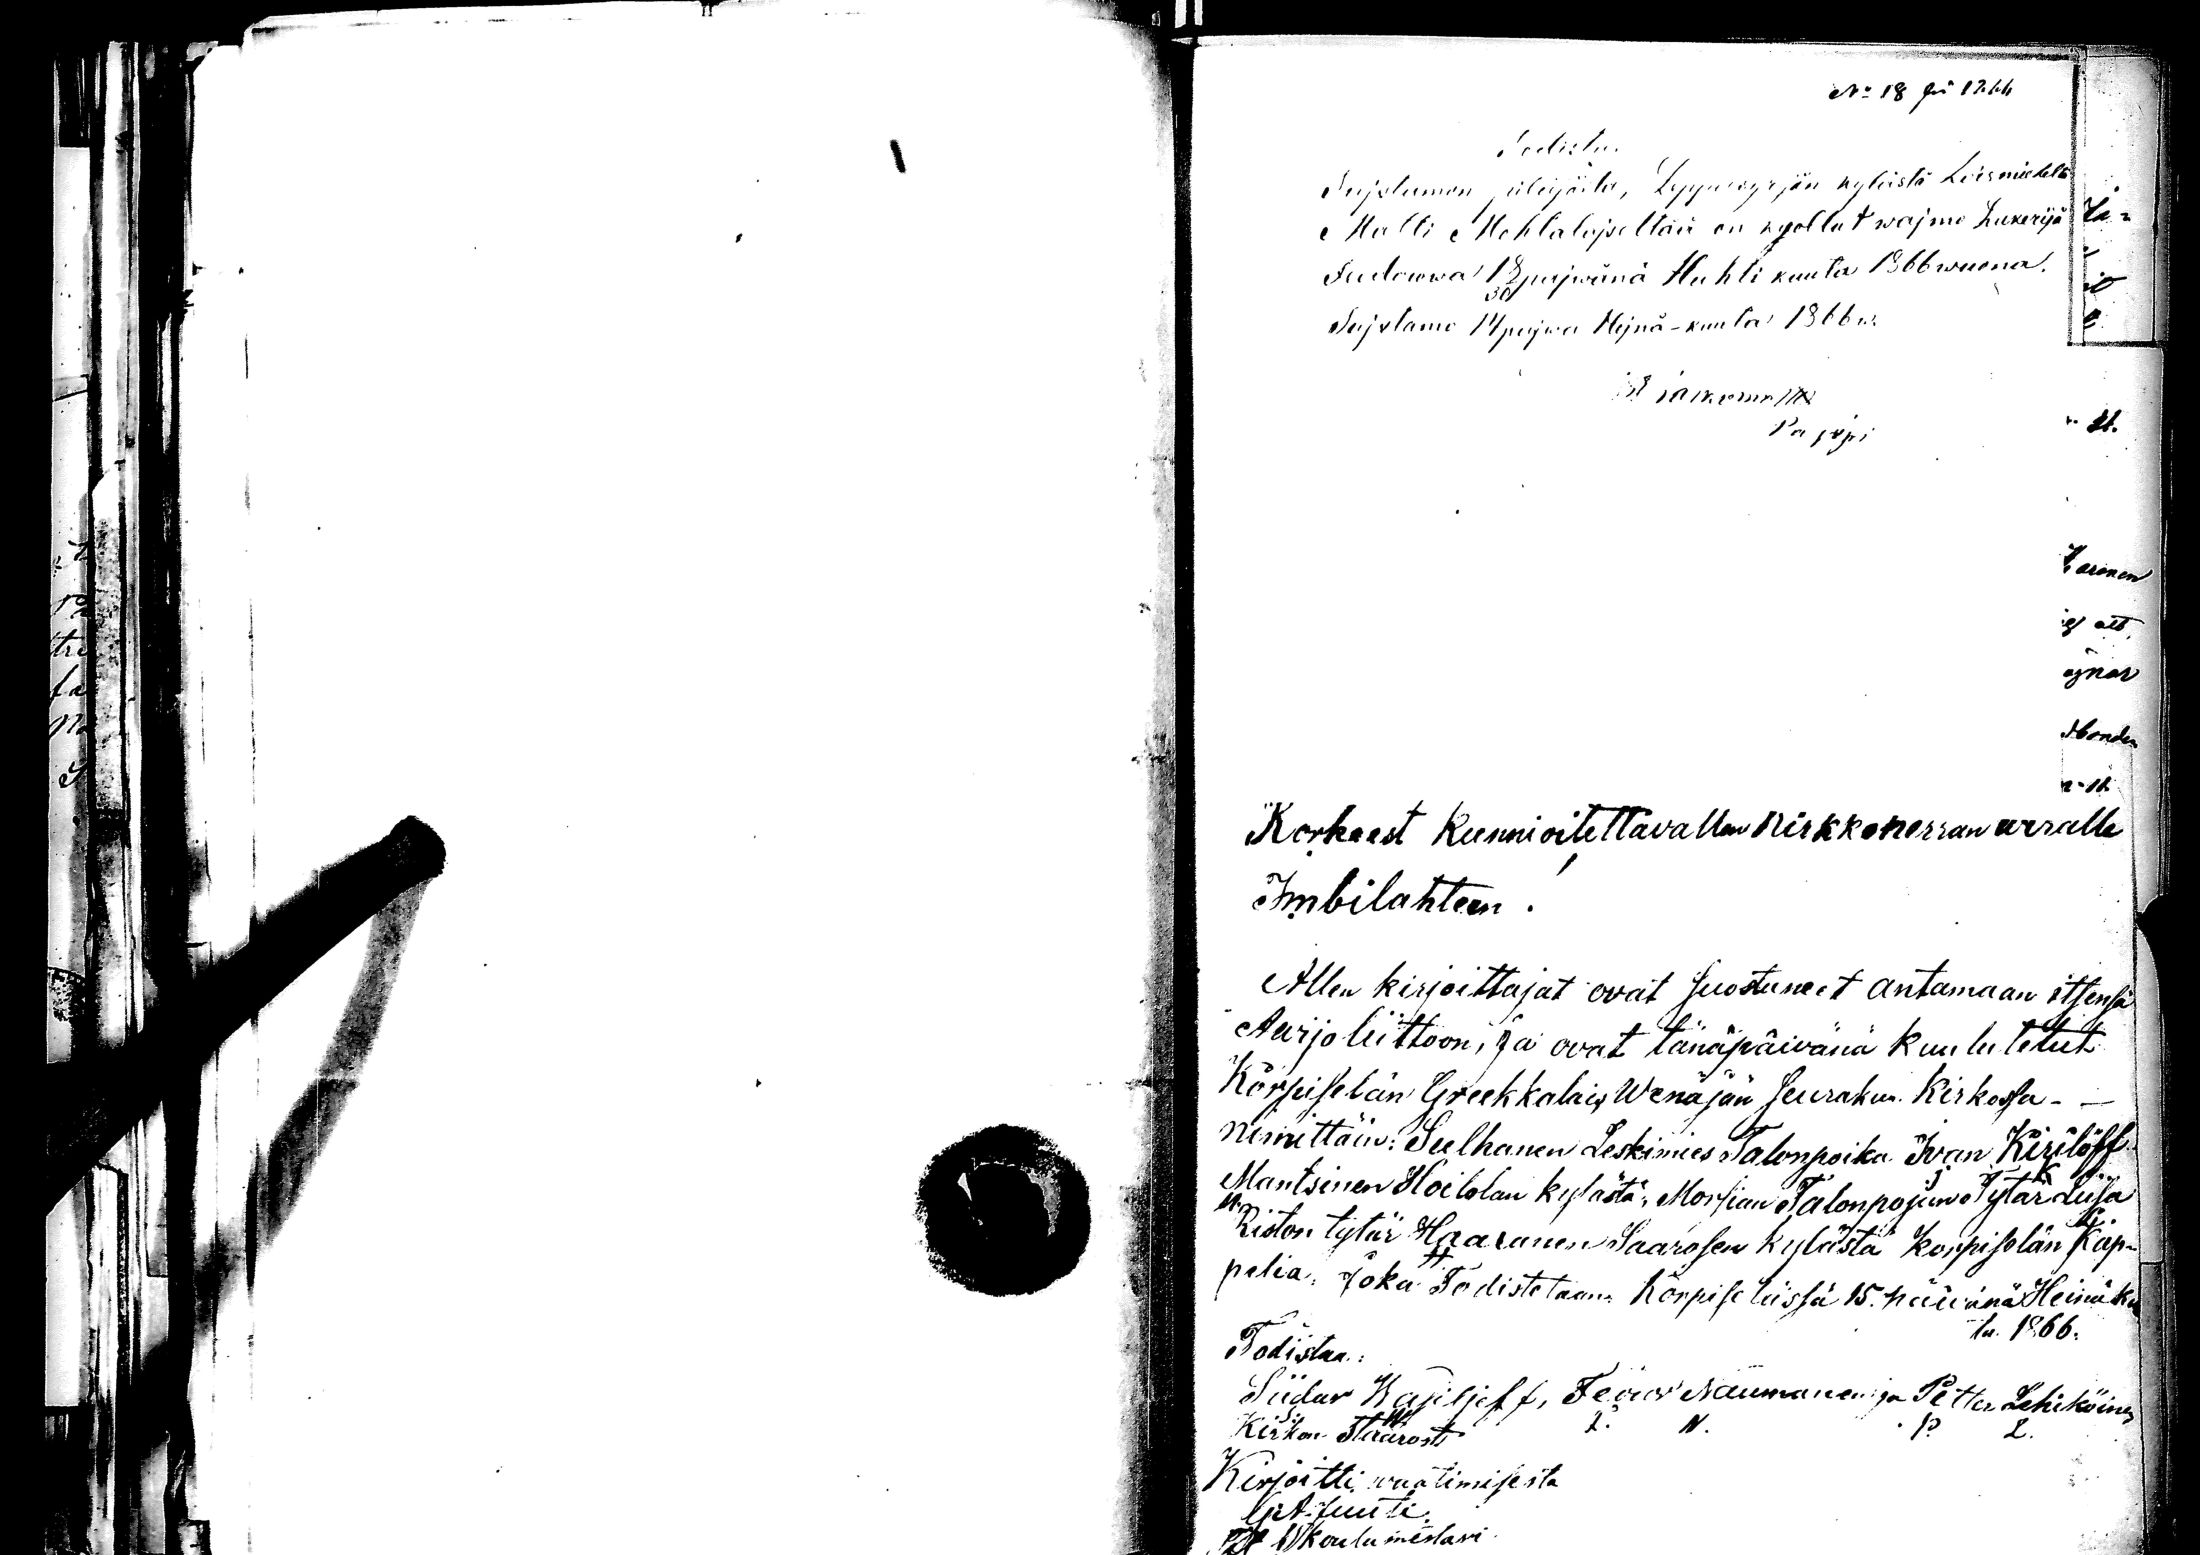 No 18 för 1866
Todistu.
Sujstamon pitäjästä, Leppäsyrjän kylästä Loismiehellä
Matti Mohtalajselta on kuollut wajmo Lukerija
Fudorowa 18/30 pajwänä Huhti kuuta 1866 wuona.
Sujstamo 14 pajwa Hejnä-kuuta 1866 w.
Pa ppi
Korkeast kunnioitettavallen Kirkkoherran wirralle
Imbilahteen.
Allen kirjoittajat ovat Suostuneet antamaan itsensä
Awijoliittoon, ja ovat tänäpäivänä kuulutetut
Korpiselän Greekkalais Wenäjän Seurakun. kirkossa - -
nimittäin: Sulhanen Leskimies Talonpoika Ivan Kirilöff
Mantsinen Hoilolan kylästä, Morsian Talonpojan Tytär Liisa
Riston tytär Haaranen Saarosen kylästä korpiselän Kap-
pelia. Joka Todistetaan. Korpiselässä 15. päivänä Heinäku
ta. 1866.
Todistaa:
Siidar Wasiljeff, Feodor Naumanen ja Petter Lehiköinen
Kirkon Staarosti F. N. P. L.
Kirjoitti waatimisesta
koulumestari
Haronen